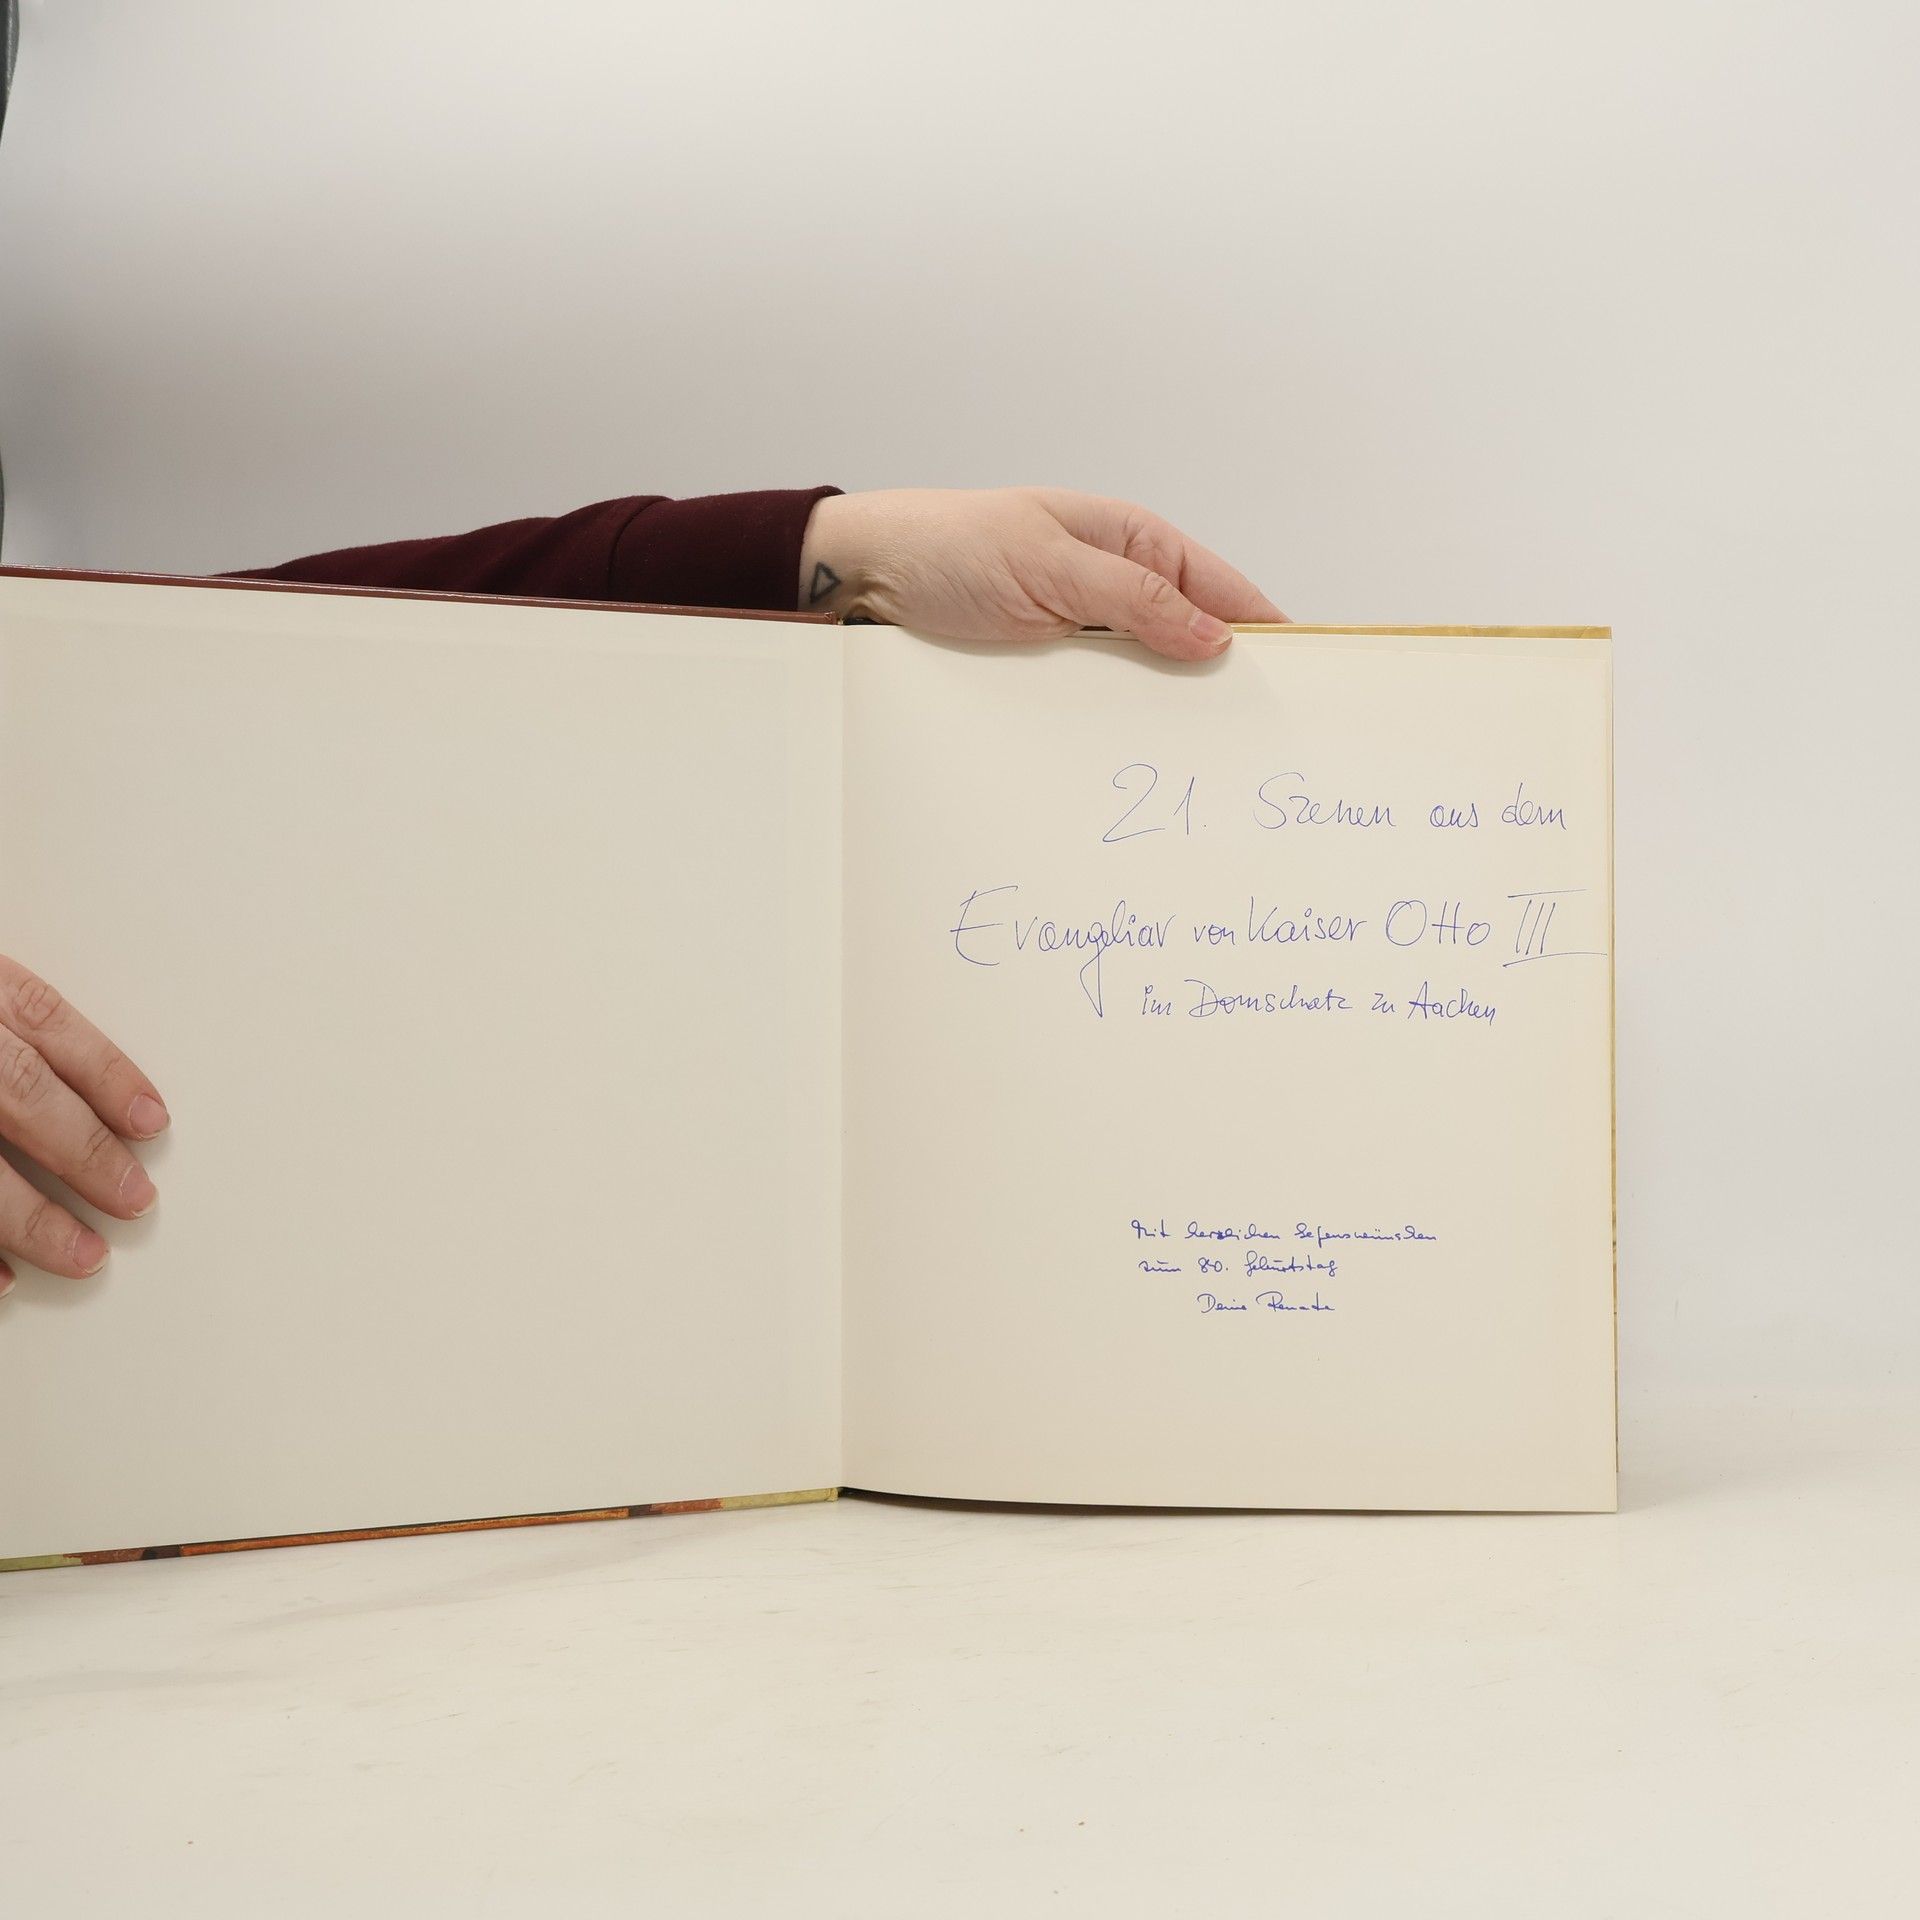 21. Szenen aus dem
Evangeliar von Kaiser Otto III
im Domschatz zu Aachen
Mit herzlichen Segenswünschen
zum 80. Geburtstag
Deine Renate